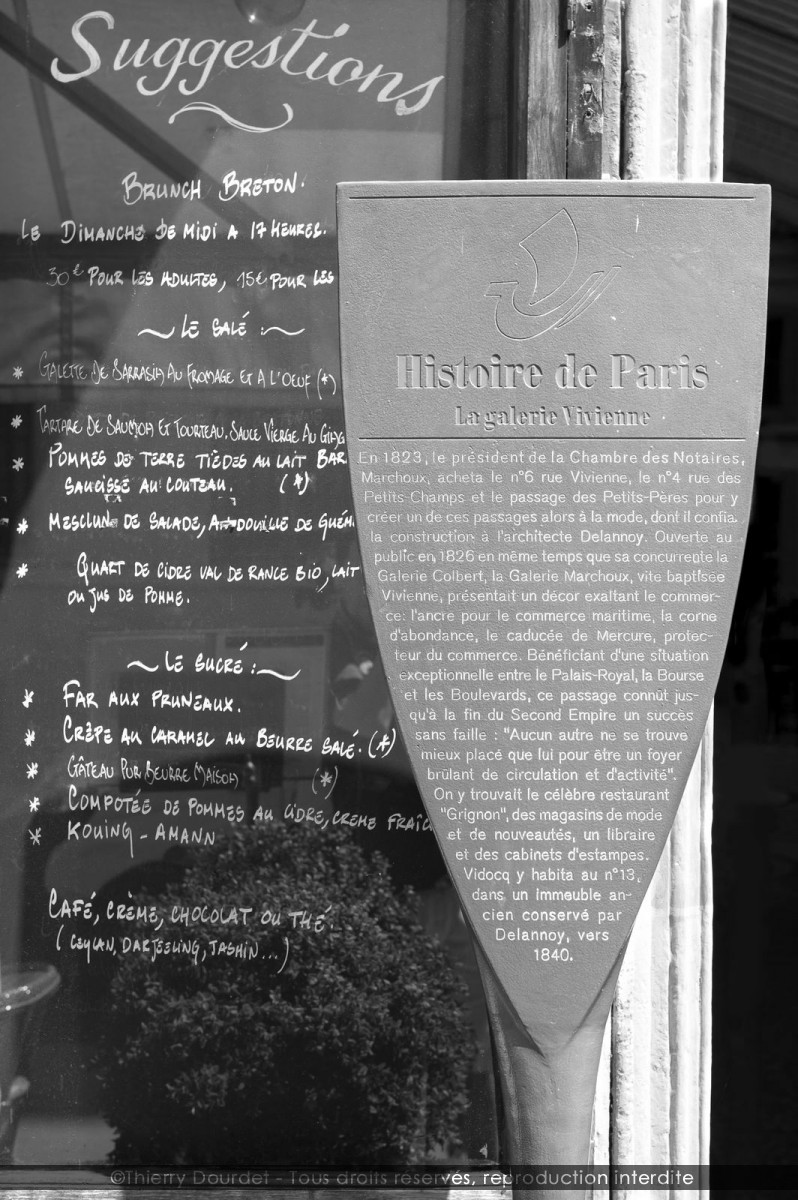 Suggestions
BRUNCH BRETON.
LE DIMANCHE DE MIDI A 17 HEURES.
30€ POUR LES ADULTES, 15€ POUR LES
LE SALÉ :
* GALETTE DE SARRASIN AU FROMAGE ET A L'OEUF (*)
* TARTARE DE SAUMON ET TOURTEAU. SAUCE VIERGE AU GING
* POMMES DE TERRE TIÈDES AU LAIT BAR
SAUCISSE AU COUTEAU. (*)
* MESCLUN DE SALADE, ANDOUILLE DE GUÉM
* QUART DE CIDRE VAL DE RANCE BIO, LAIT
OU JUS DE POMME.
LE SUCRÉ :
* FAR AUX PRUNEAUX.
* CRÊPE AU CARAMEL AU BEURRE SALÉ. (*)
* GÂTEAU PUR BEURRE MAISON (*)
* COMPOTÉE DE POMMES AU CIDRE, CREME FRAÎC
* KOUING - AMANN
CAFÉ, CRÈME, CHOCOLAT OU THÉ.
( CEYLAN, DARJEELING, TASHIN...)
Histoire de Paris
La galerie Vivienne
En 1823, le président de la Chambre des Notaires,
Marchoux, acheta le n°6 rue Vivienne, le n°4 rue des
Petits-Champs et le passage des Petits-Pères pour y
créer un de ces passages alors à la mode, dont il confia
la construction à l'architecte Delannoy. Ouverte au
public en 1826 en même temps que sa concurrente la
Galerie Colbert, la Galerie Marchoux, vite baptisée
Vivienne, présentait un décor exaltant le commer-
ce: l'ancre pour le commerce maritime, la corne
d'abondance, le caducée de Mercure, protec-
teur du commerce. Bénéficiant d'une situation
exceptionnelle entre le Palais-Royal, la Bourse
et les Boulevards, ce passage connût jus-
qu'à la fin du Second Empire un succès
sans faille : "Aucun autre ne se trouve
mieux placé que lui pour être un foyer
brûlant de circulation et d'activité".
On y trouvait le célèbre restaurant
"Grignon", des magasins de mode
et de nouveautés, un libraire
et des cabinets d'estampes.
Vidocq y habita au n°13,
dans un immeuble an-
cien conservé par
Delannoy, vers
1840.
©Thierry Dourdet - Tous droits réservés, reproduction interdite